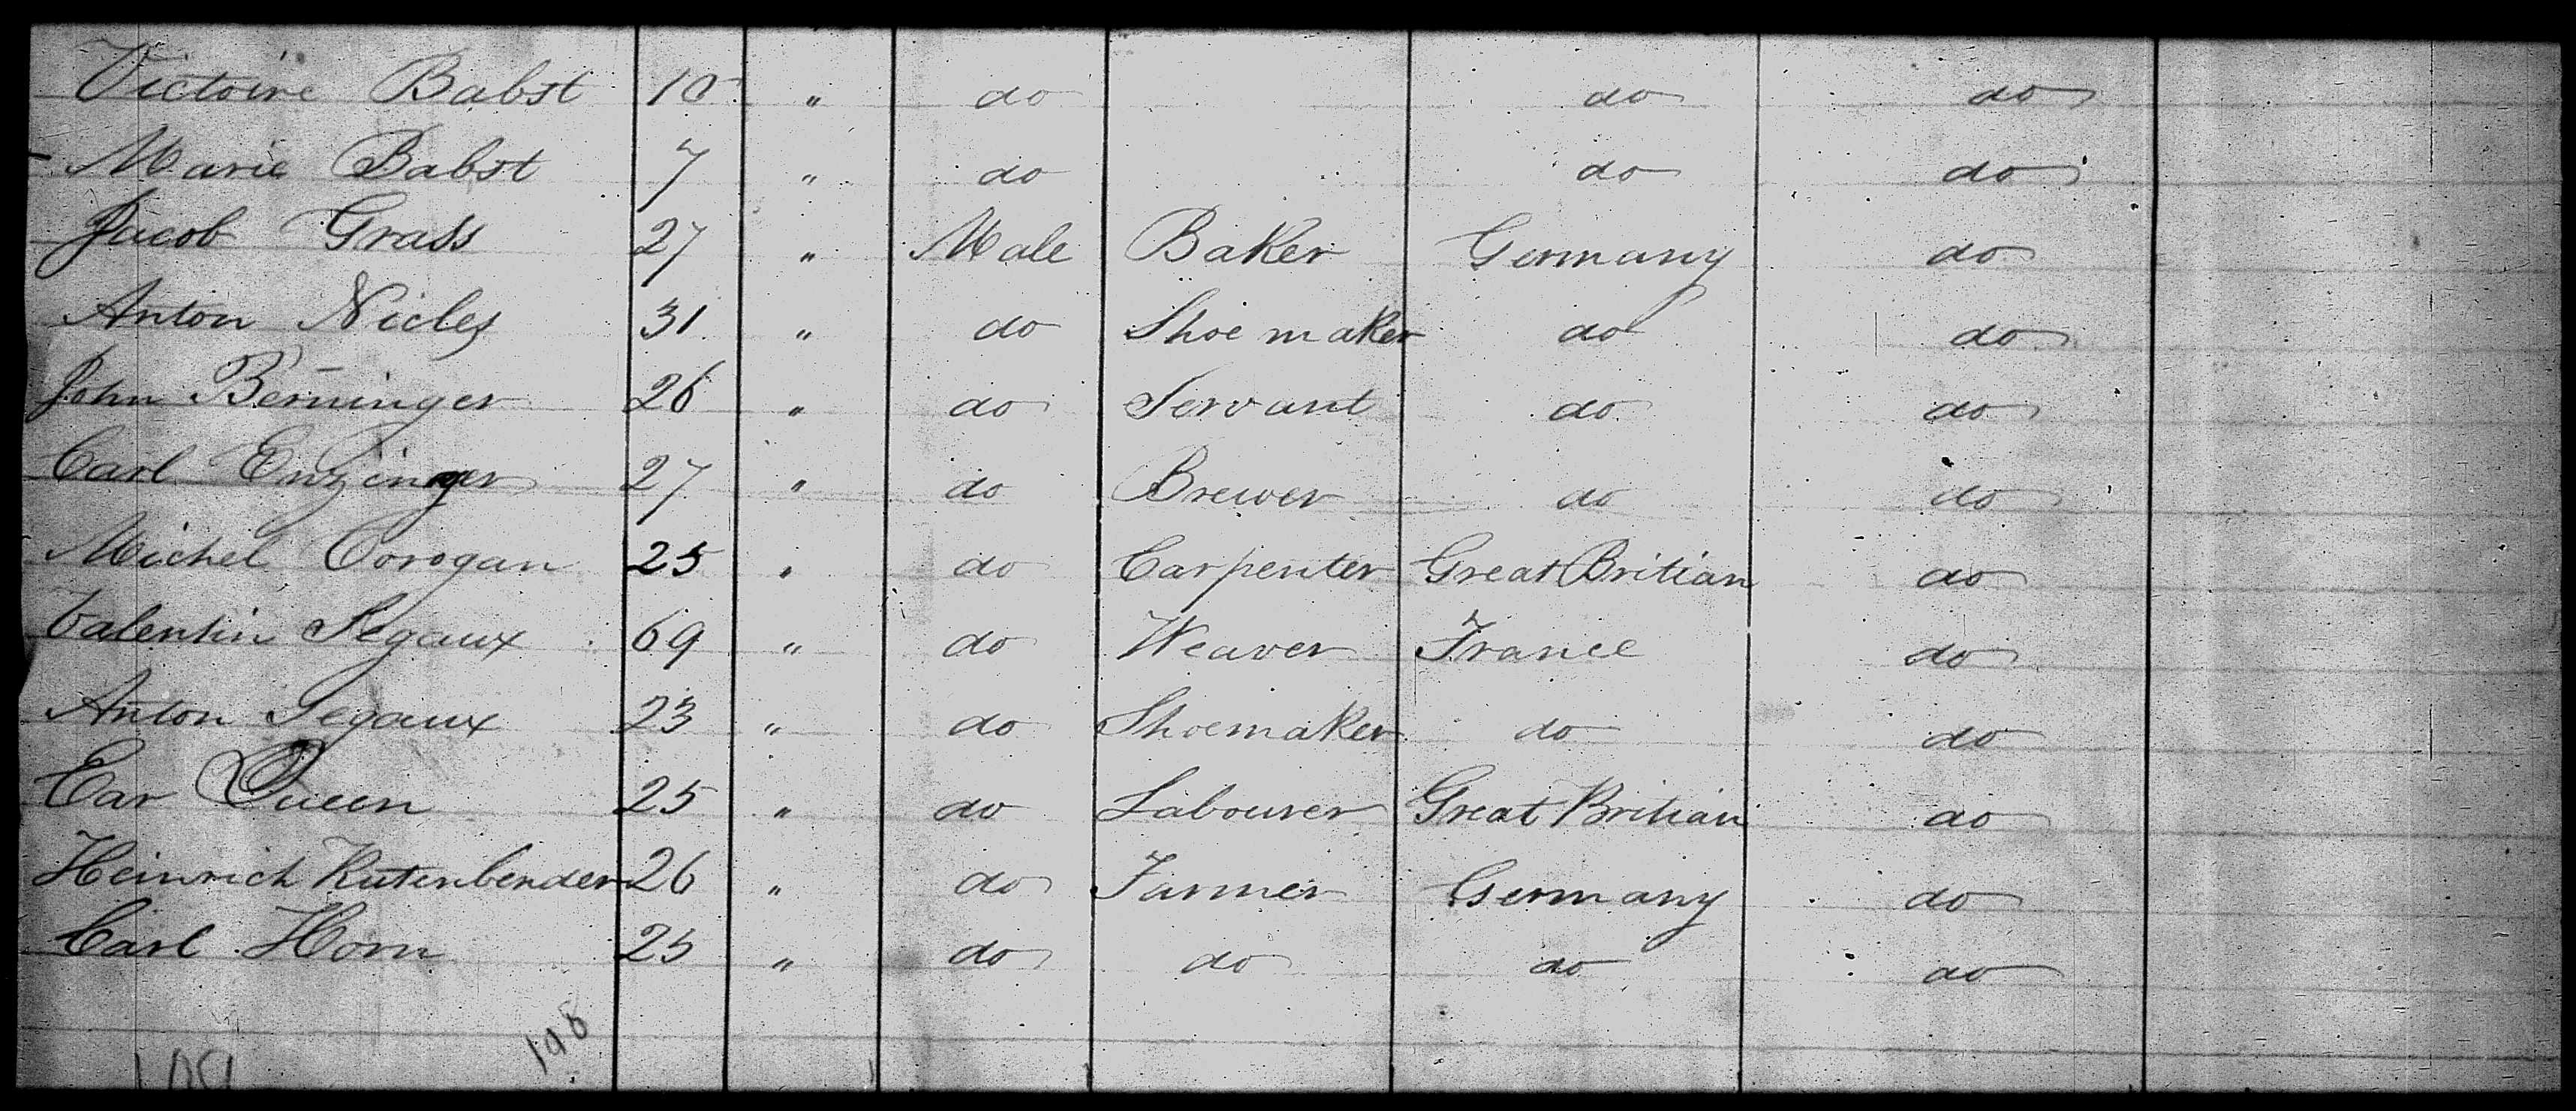 Victoire Babst 10 " do do do
Marie Babst 7 " do do do
Jacob Grass 27 " Male Baker Germany do
Anton Nicles 31 " do Shoe maker do do
John Berninger 26 " do Servant do do
Carl Enzinger 27 " do Brewer do do
Michel Corogan 25 " do Carpenter Great Britian do
Valentin Segaux 69 " do Weaver France do
Anton Segaux 23 " do Shoemaker do do
Ear Queen 25 " do Labourer Great Britian do
Heinrich Rutenbender 26 " do Farmer Germany do
Carl Horn 25 " do do do do
198